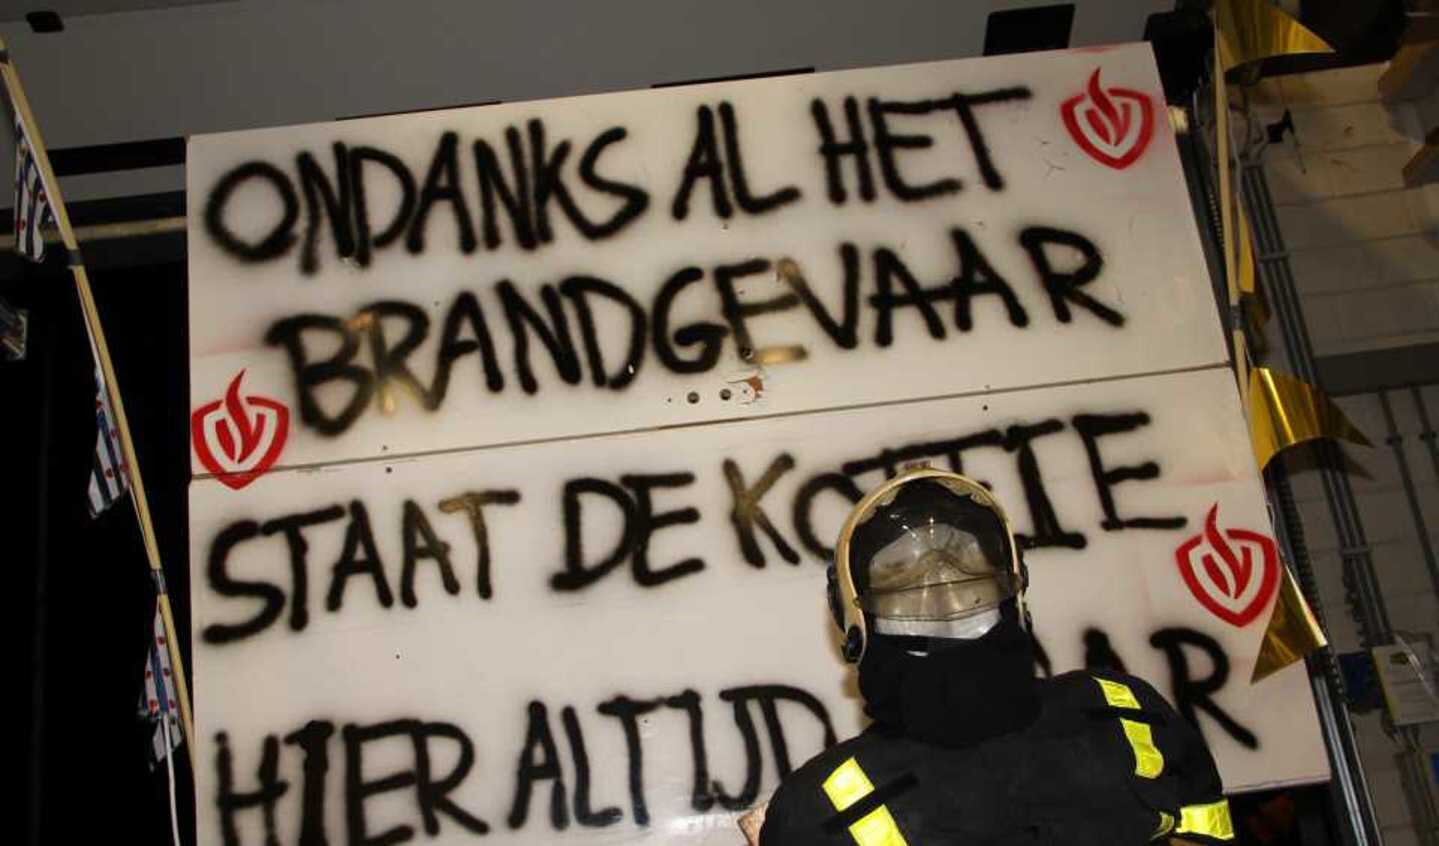 ONDANKS AL HET
BRANDGEVAAR
STAAT DE KOFFIE
HIER ALTIJD